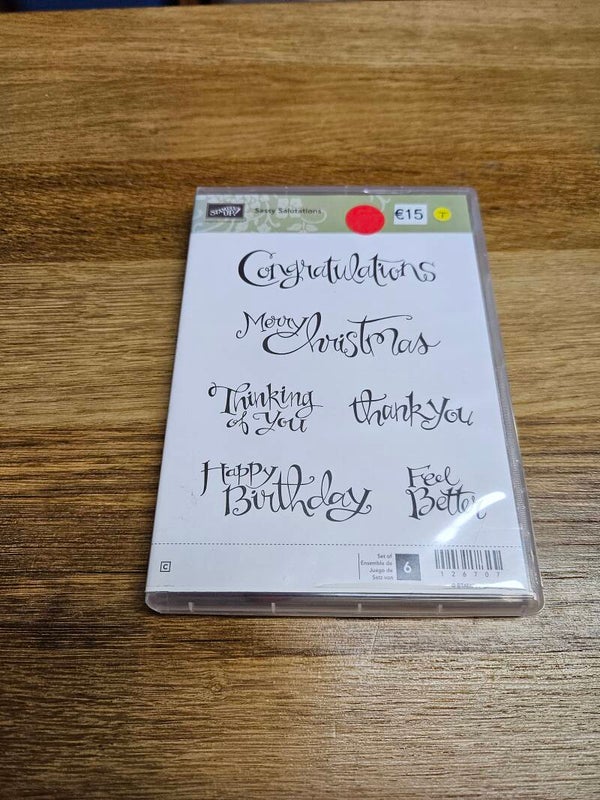 STAMPIN' UP!
Sassy Salutations
€15
T
Congratulations
Merry Christmas
Thinking of You
thank you
Happy Birthday
Feel Better
C
Set of
Ensemble de
Juego de
Satz von
6
126707